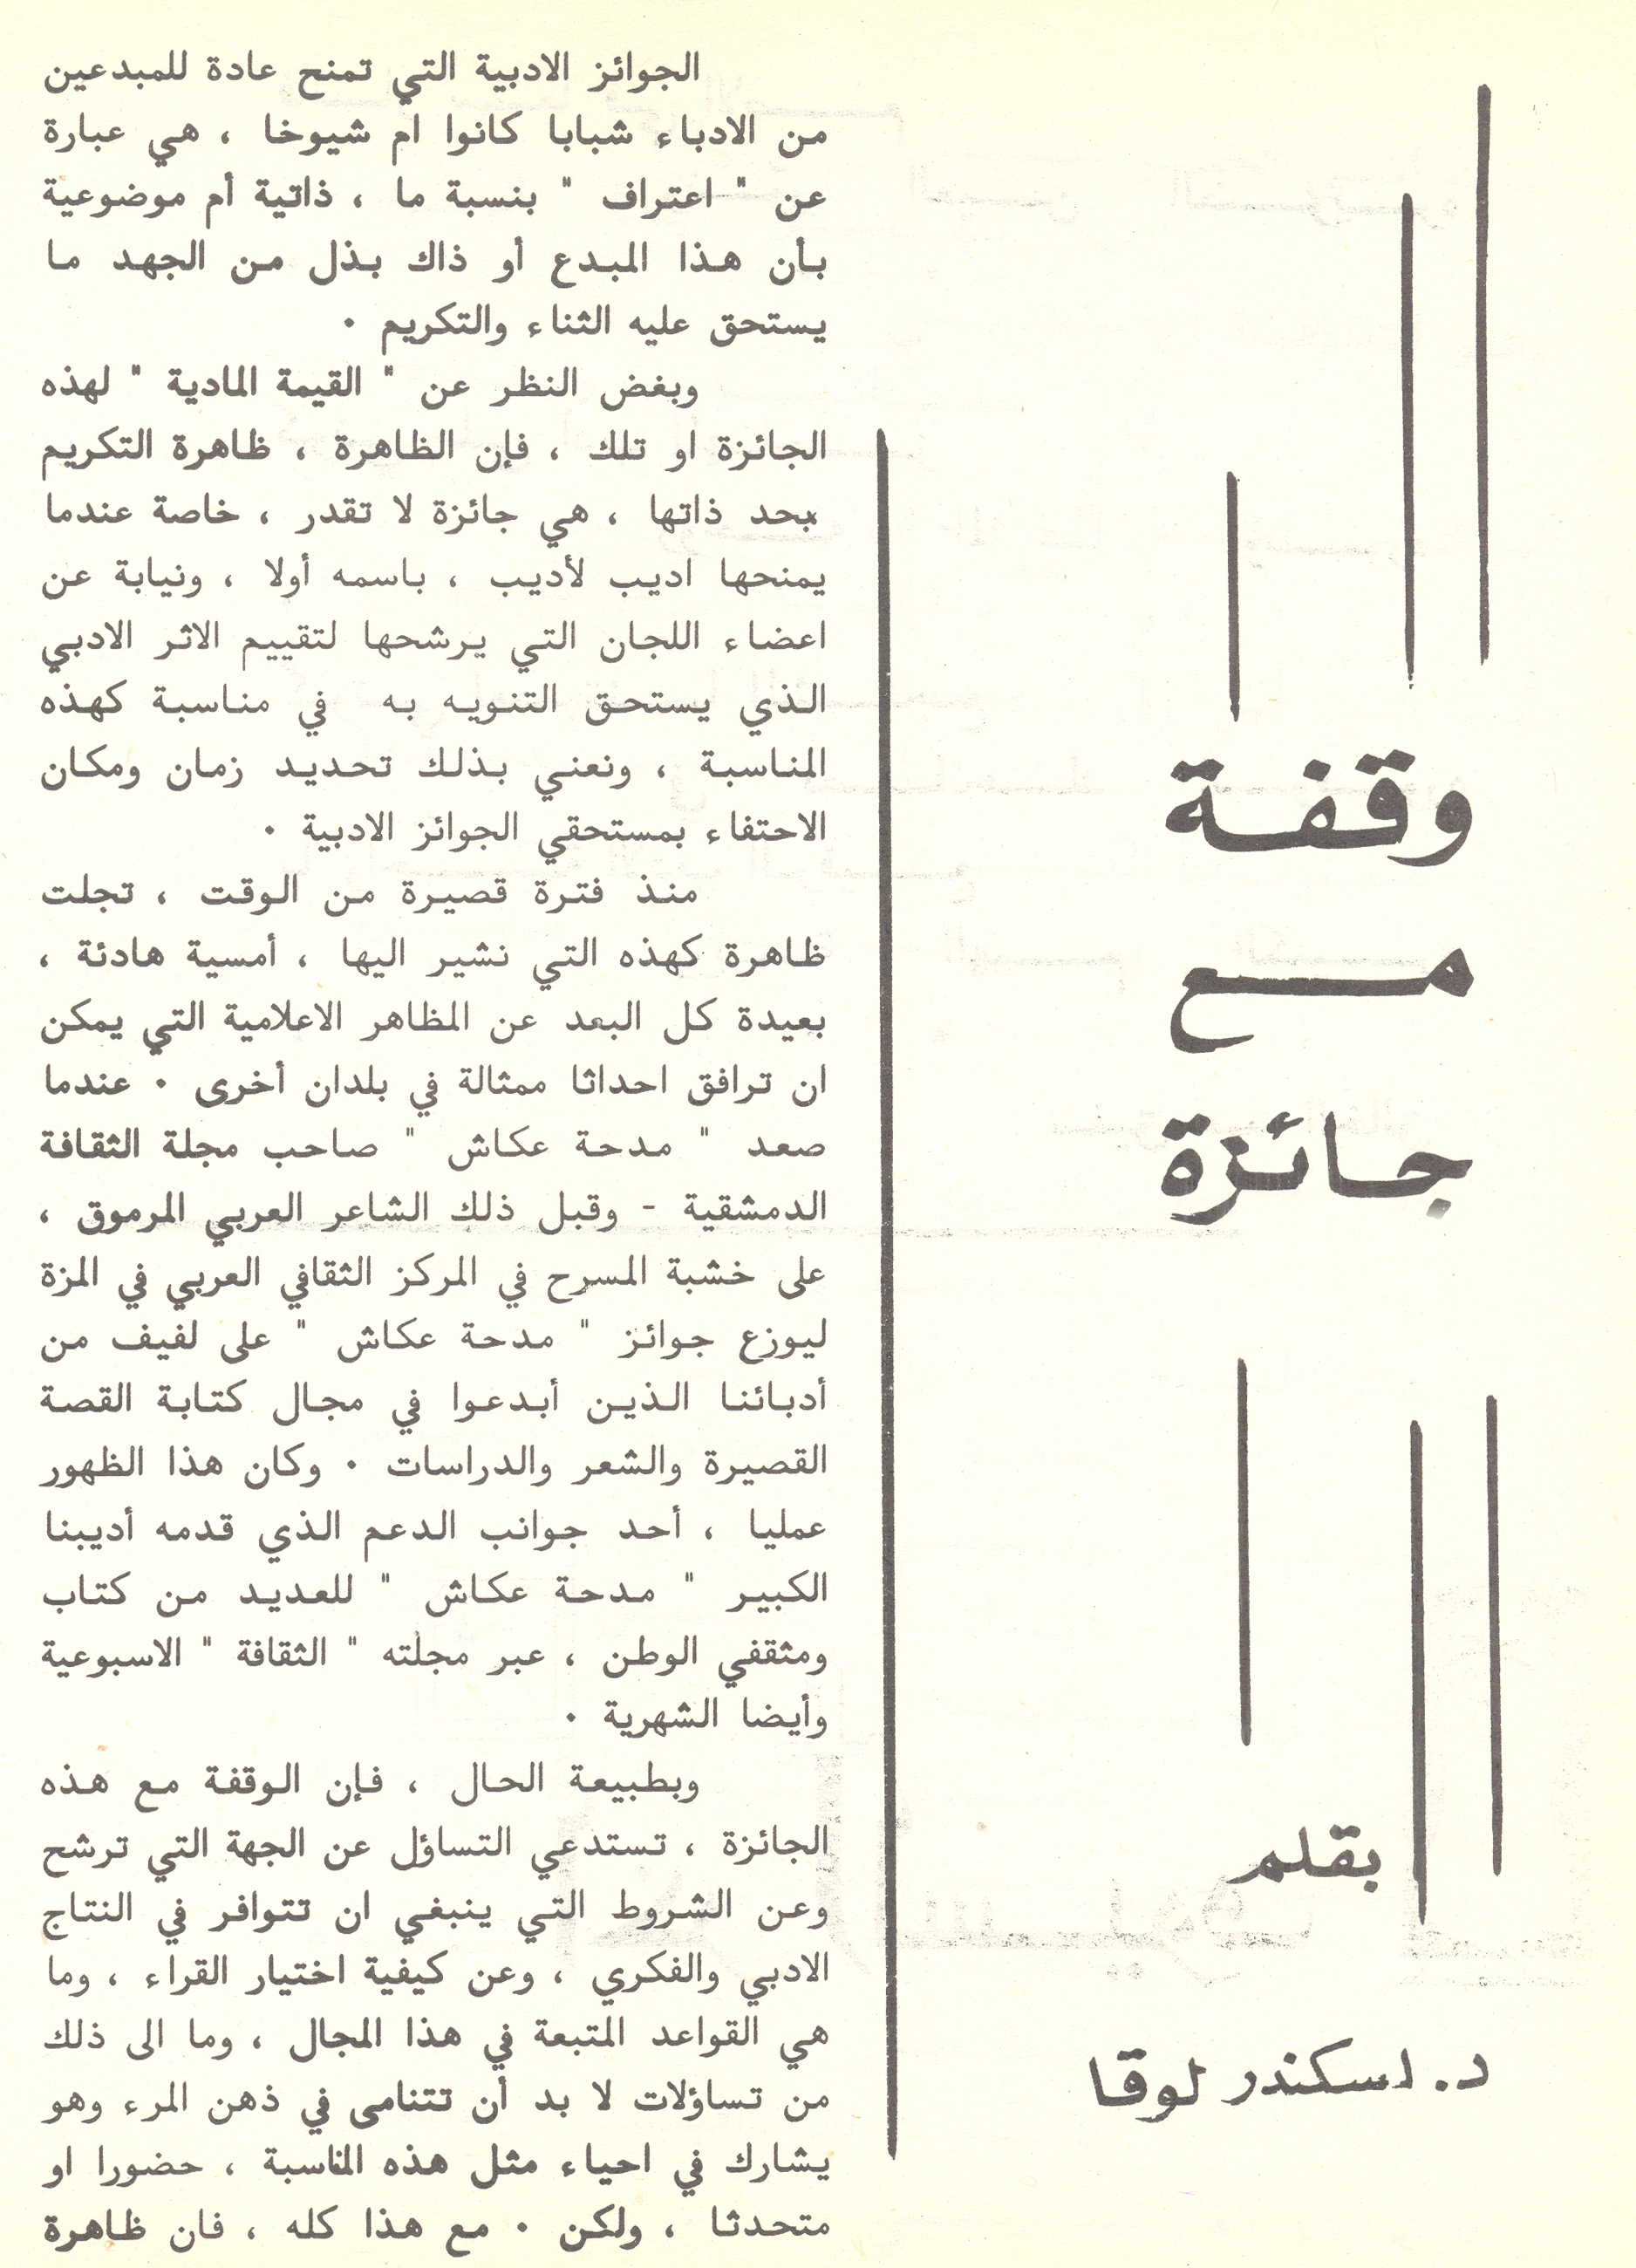 وقفة
مع
جائزة
بقلم
د. اسكندر لوقا
الجوائز الادبية التي تمنح عادة للمبدعين
من الادباء شبابا كانوا ام شيوخا ، هي عبارة
عن " اعتراف " بنسبة ما ، ذاتية أم موضوعية
بأن هذا المبدع أو ذاك بذل من الجهد ما
يستحق عليه الثناء والتكريم ٠
وبغض النظر عن " القيمة المادية " لهذه
الجائزة او تلك ، فإن الظاهرة ، ظاهرة التكريم
بحد ذاتها ، هي جائزة لا تقدر ، خاصة عندما
يمنحها اديب لأديب ، باسمه أولا ، ونيابة عن
اعضاء اللجان التي يرشحها لتقييم الاثر الادبي
الذي يستحق التنويه به في مناسبة كهذه
المناسبة ، ونعني بذلك تحديد زمان ومكان
الاحتفاء بمستحقي الجوائز الادبية ٠
منذ فترة قصيرة من الوقت ، تجلت
ظاهرة كهذه التي نشير اليها ، أمسية هادئة ،
بعيدة كل البعد عن المظاهر الاعلامية التي يمكن
ان ترافق احداثا ممثالة في بلدان أخرى ٠ عندما
صعد " مدحة عكاش " صاحب مجلة الثقافة
الدمشقية - وقبل ذلك الشاعر العربي المرموق ،
على خشبة المسرح في المركز الثقافي العربي في المزة
ليوزع جوائز " مدحة عكاش " على لفيف من
أدبائنا الذين أبدعوا في مجال كتابة القصة
القصيرة والشعر والدراسات ٠ وكان هذا الظهور
عمليا ، أحد جوانب الدعم الذي قدمه أديبنا
الكبير " مدحة عكاش " للعديد من كتاب
ومثقفي الوطن ، عبر مجلته " الثقافة " الاسبوعية
وأيضا الشهرية ٠
وبطبيعة الحال ، فإن الوقفة مع هذه
الجائزة ، تستدعي التساؤل عن الجهة التي ترشح
وعن الشروط التي ينبغي ان تتوافر في النتاج
الادبي والفكري ، وعن كيفية اختيار القراء ، وما
هي القواعد المتبعة في هذا المجال ، وما الى ذلك
من تساؤلات لا بد أن تتنامى في ذهن المرء وهو
يشارك في احياء مثل هذه المناسبة ، حضورا او
متحدثا ، ولكن ٠ مع هذا كله ، فان ظاهرة